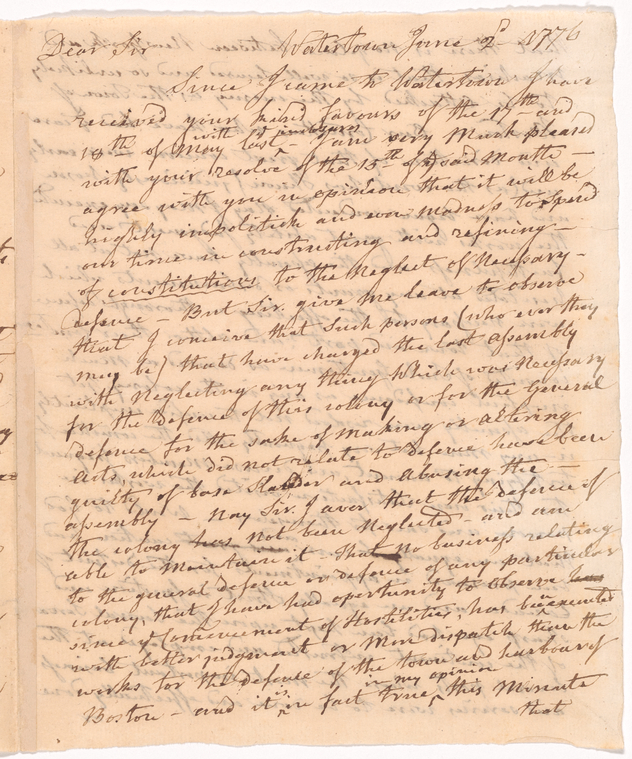 Dear Sir Watertown June 2d 1776
Since I came to Watertown I have
received your kind favours of the 17th and
with it's inclosures
18th of May last - I am very Much pleased
with your resolve of the 15th of said Month -
agree with you in opinion that it will be
highly impolitick and even madness to spend
our time in constructing and refining -
of constitutions to the Neglect of Necessary -
defence - But Sir. give me leave to observe
that I conceive that such persons (who ever they
may be) that have charged the last assembly
with Neglecting any thing Which was Necessary
for the Defence of this colony or for the General
defence for the sake of Making or altering
acts which did not relate to Defence have been
guilty of base Slander and Abusing the -
assembly - Nay Sir. I aver that the defence of
the colony has not been Neglected - and am
able to Maintain it That no business relating
to the general defence or defence of any particular
colony, that I have had opertunity to observe
since ye Comencement of Hostilities, has been executed
with better judgment or More dispatch than the
works for the defence of the town and harbour of
in my opinion
Boston - and it is in fact true, this Minente
that